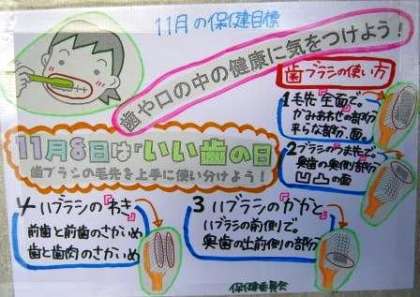 11月の保健目標
歯や口の中の健康に気をつけよう！
11月8日は『いい歯の日
歯ブラシの毛先を上手に使い分けよう！
歯ブラシの使い方
1毛先『全面』で。
かみあわせの部分、
平らな部分、面。
2ブラシの『つま先』で。
奥歯の奥側部分
凹凸の面
3ハブラシの『かかと』
ハブラシの前側で。
奥歯の出前側の部分
4ハブラシの『わき』
前歯と前歯のさかいめ
歯と歯肉のさかいめ
保健委員会